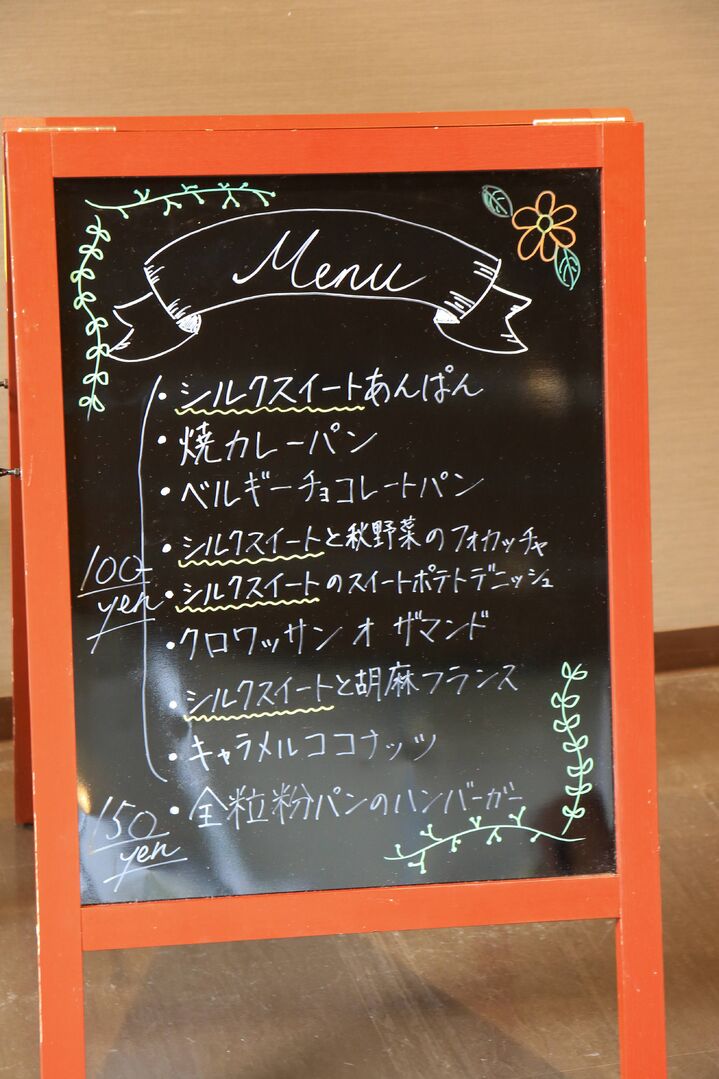 Menu
・シルクスイートあんぱん
・焼カレーパン
・ベルギーチョコレートパン
・シルクスイートと秋野菜のフォカッチャ
100 yen
・シルクスイートのスイートポテトデニッシュ
・クロワッサン オ ザマンド
・シルクスイートと胡麻フランス
・キャラメルココナッツ
150 yen
・全粒粉パンのハンバーガー